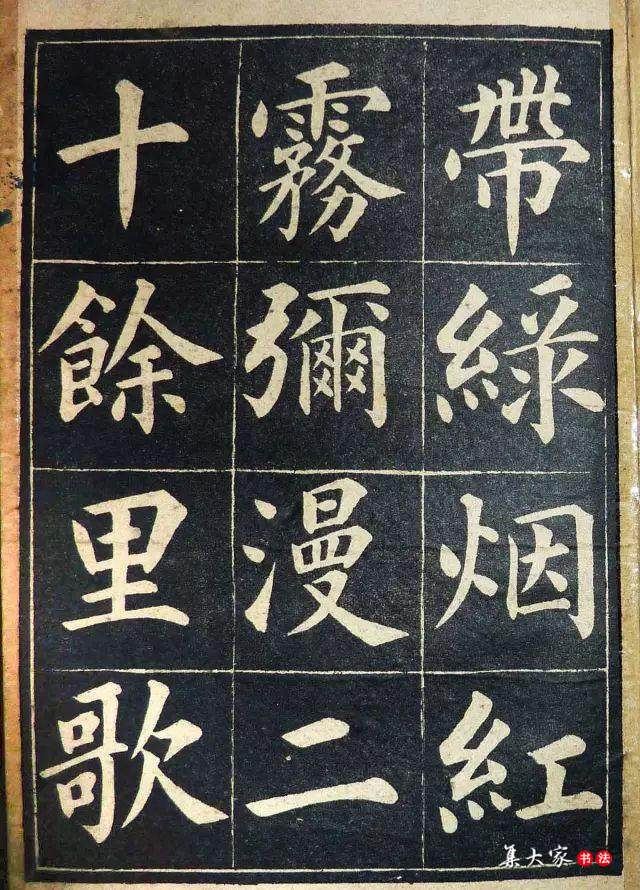 帶綠烟紅
霧彌漫二
十餘里歌
集大家书法